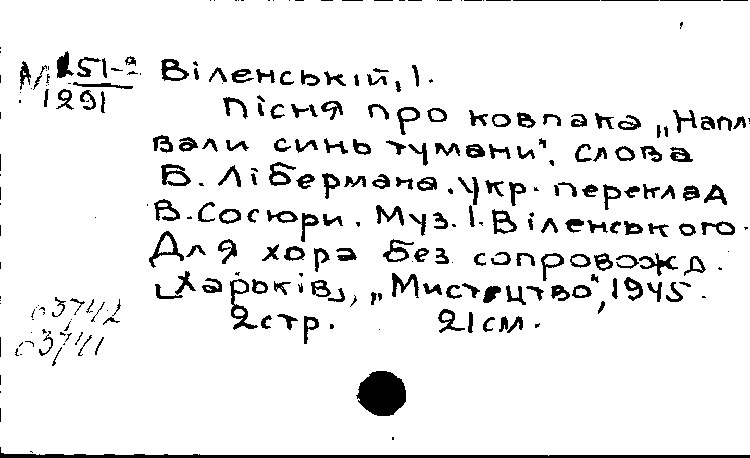 М 251-2
1291
Віленській, І.
Пісня про ковпака „Напли
вали синь тумани". Слова
Б. Лібермана. укр. переклад
В. Сосюри. Муз. І. Віленського.
Для хора без сопровожд.
[Харьків], „Мистецтво", 1945.
2 стр. 21 см.
63742
63741